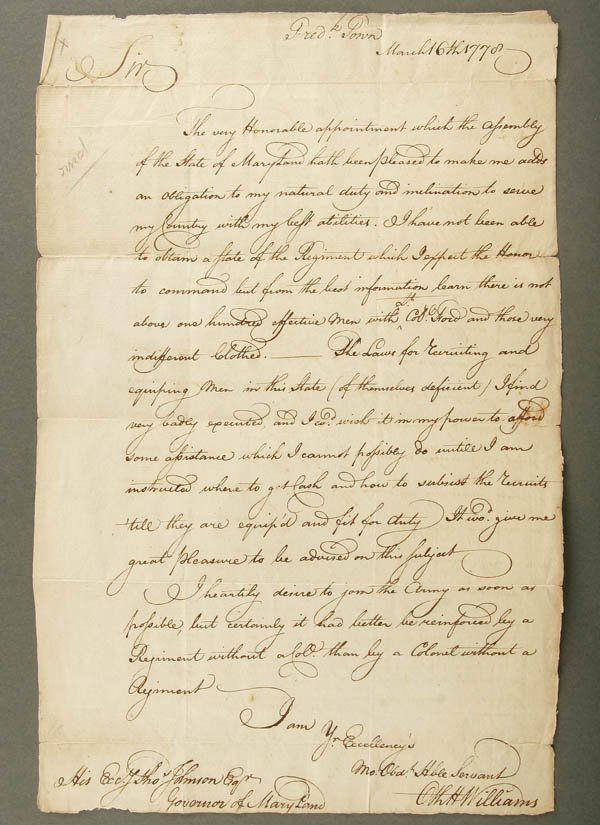 Fredk. Town
March 16th 1778
Sir
The very Honorable appointment which the Assembly
of the State of Maryland hath been pleased to make me adds
an obligation to my natural duty and inclination to serve
my Country with my best abilities. I have not been able
to obtain a state of the Regiment which I expect the Honor
to command but from the best information learn there is not
above one hundred effective Men with Lt. Colo. Ford and those very
indifferent Clothed. — The Laws for recruiting and
equiping Men in this State (of themselves deficient) I find
very badly executed, and I cod. wish it in my power to afford
some assistance which I cannot possibly do untill I am
instructed where to get Cash and how to subsist the recruits
'till they are equip'd and fit for duty It wod. give me
great pleasure to be advised on this subject
I heartily desire to join the Army as soon as
possible, but certainly it had better be reinforced by a
Regiment without a Colo. than by a Colonel without a
Regiment
I am Yr. Excellency's
Mo. Obdt. Hble Servant
Oth H Williams
His Excy. Thos. Johnson Esqr
Governor of Maryland